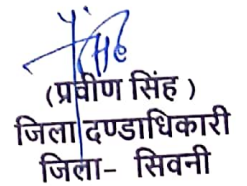 (प्रवीण सिंह )
जिला दण्डाधिकारी
जिला- सिवनी